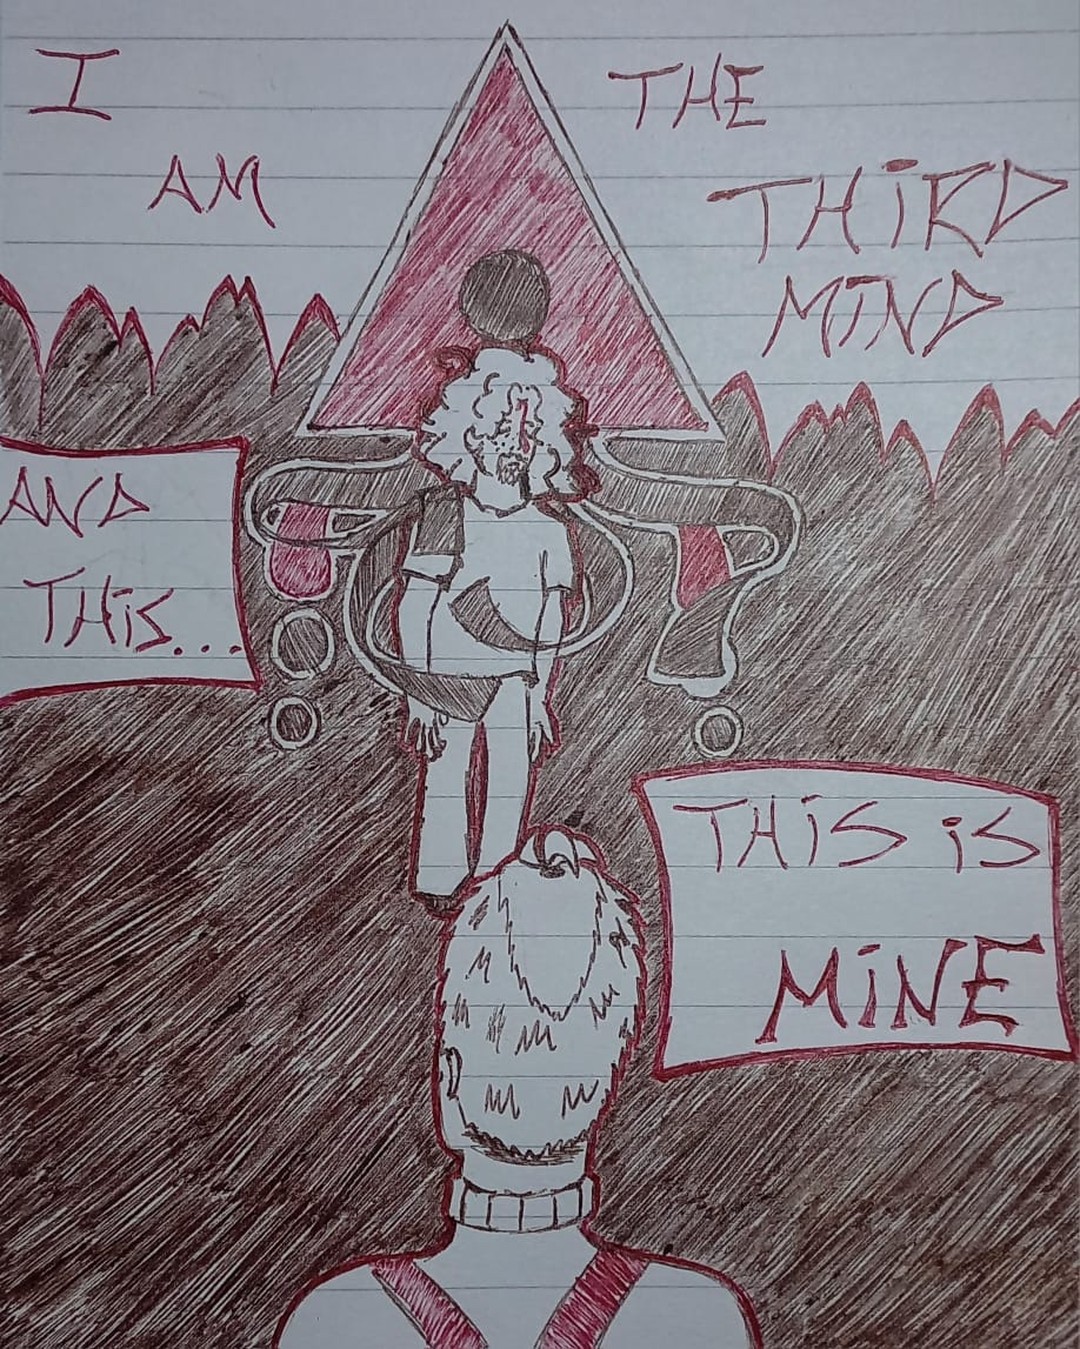 I
AM
THE
THiRD
MiND
AND
THiS...
THiS iS
MiNE